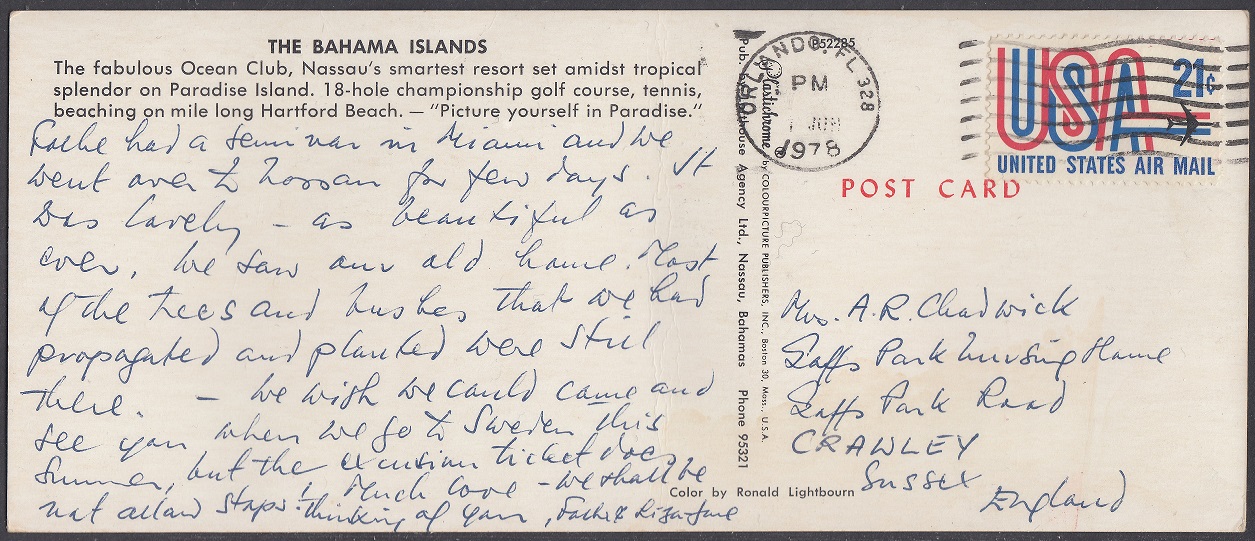 THE BAHAMA ISLANDS
The fabulous Ocean Club, Nassau's smartest resort set amidst tropical
splendor on Paradise Island. 18-hole championship golf course, tennis,
beaching on mile long Hartford Beach. — "Picture yourself in Paradise."
had a seminar in Miami and we
went over to Nassau for few days. It
was lovely – as beautiful as
ever. We saw our old home. Most
of the trees and bushes that we had
propagated and planted were still
there. – We wish we could come and
see you when we go to Sweden this
Summer, but the excursion ticket does
not allow stops! Much love – we shall be
thinking of you,
Pub. by
house Agency Ltd., Nassau, Bahamas Phone 95321
Plastichrome
by COLOURPICTURE PUBLISHERS, INC., Boston 30, Mass., U.S.A.
P52285
ORLANDO, FL 328
PM
JUN
1978
USA
21¢
UNITED STATES AIR MAIL
POST CARD
Mrs. A.R. Chadwick
Park Nursing Home
Park Road
CRAWLEY
Sussex
England
Color by Ronald Lightbourn